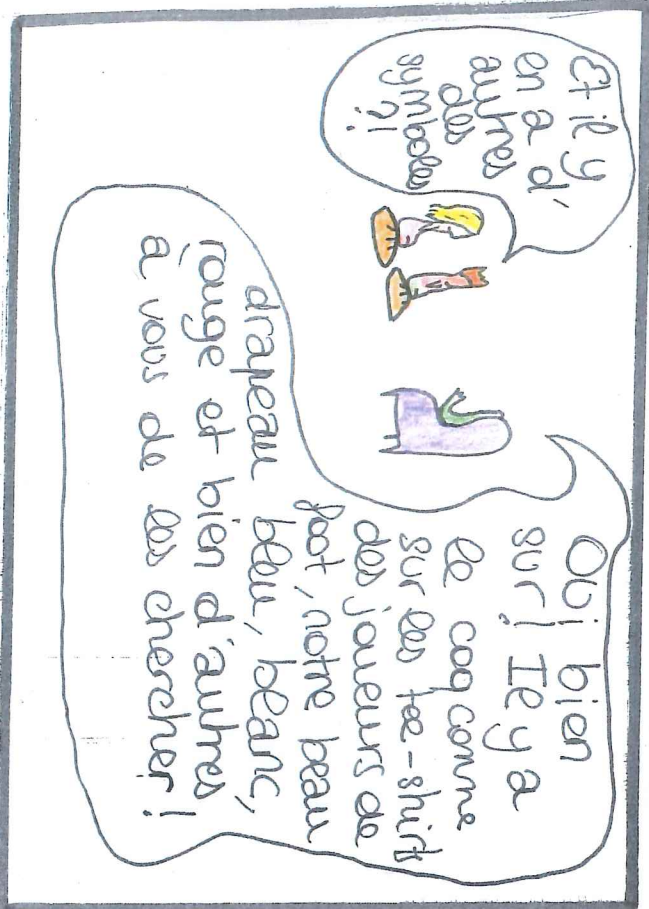 Et il y
en a d'
autres
des
symboles
?!
Oui bien
sur! Il y a
le coq comme
sur les tee-shirts
des joueurs de
foot, notre beau
drapeau bleu, blanc,
rouge et bien d'autres
a vous de les chercher!